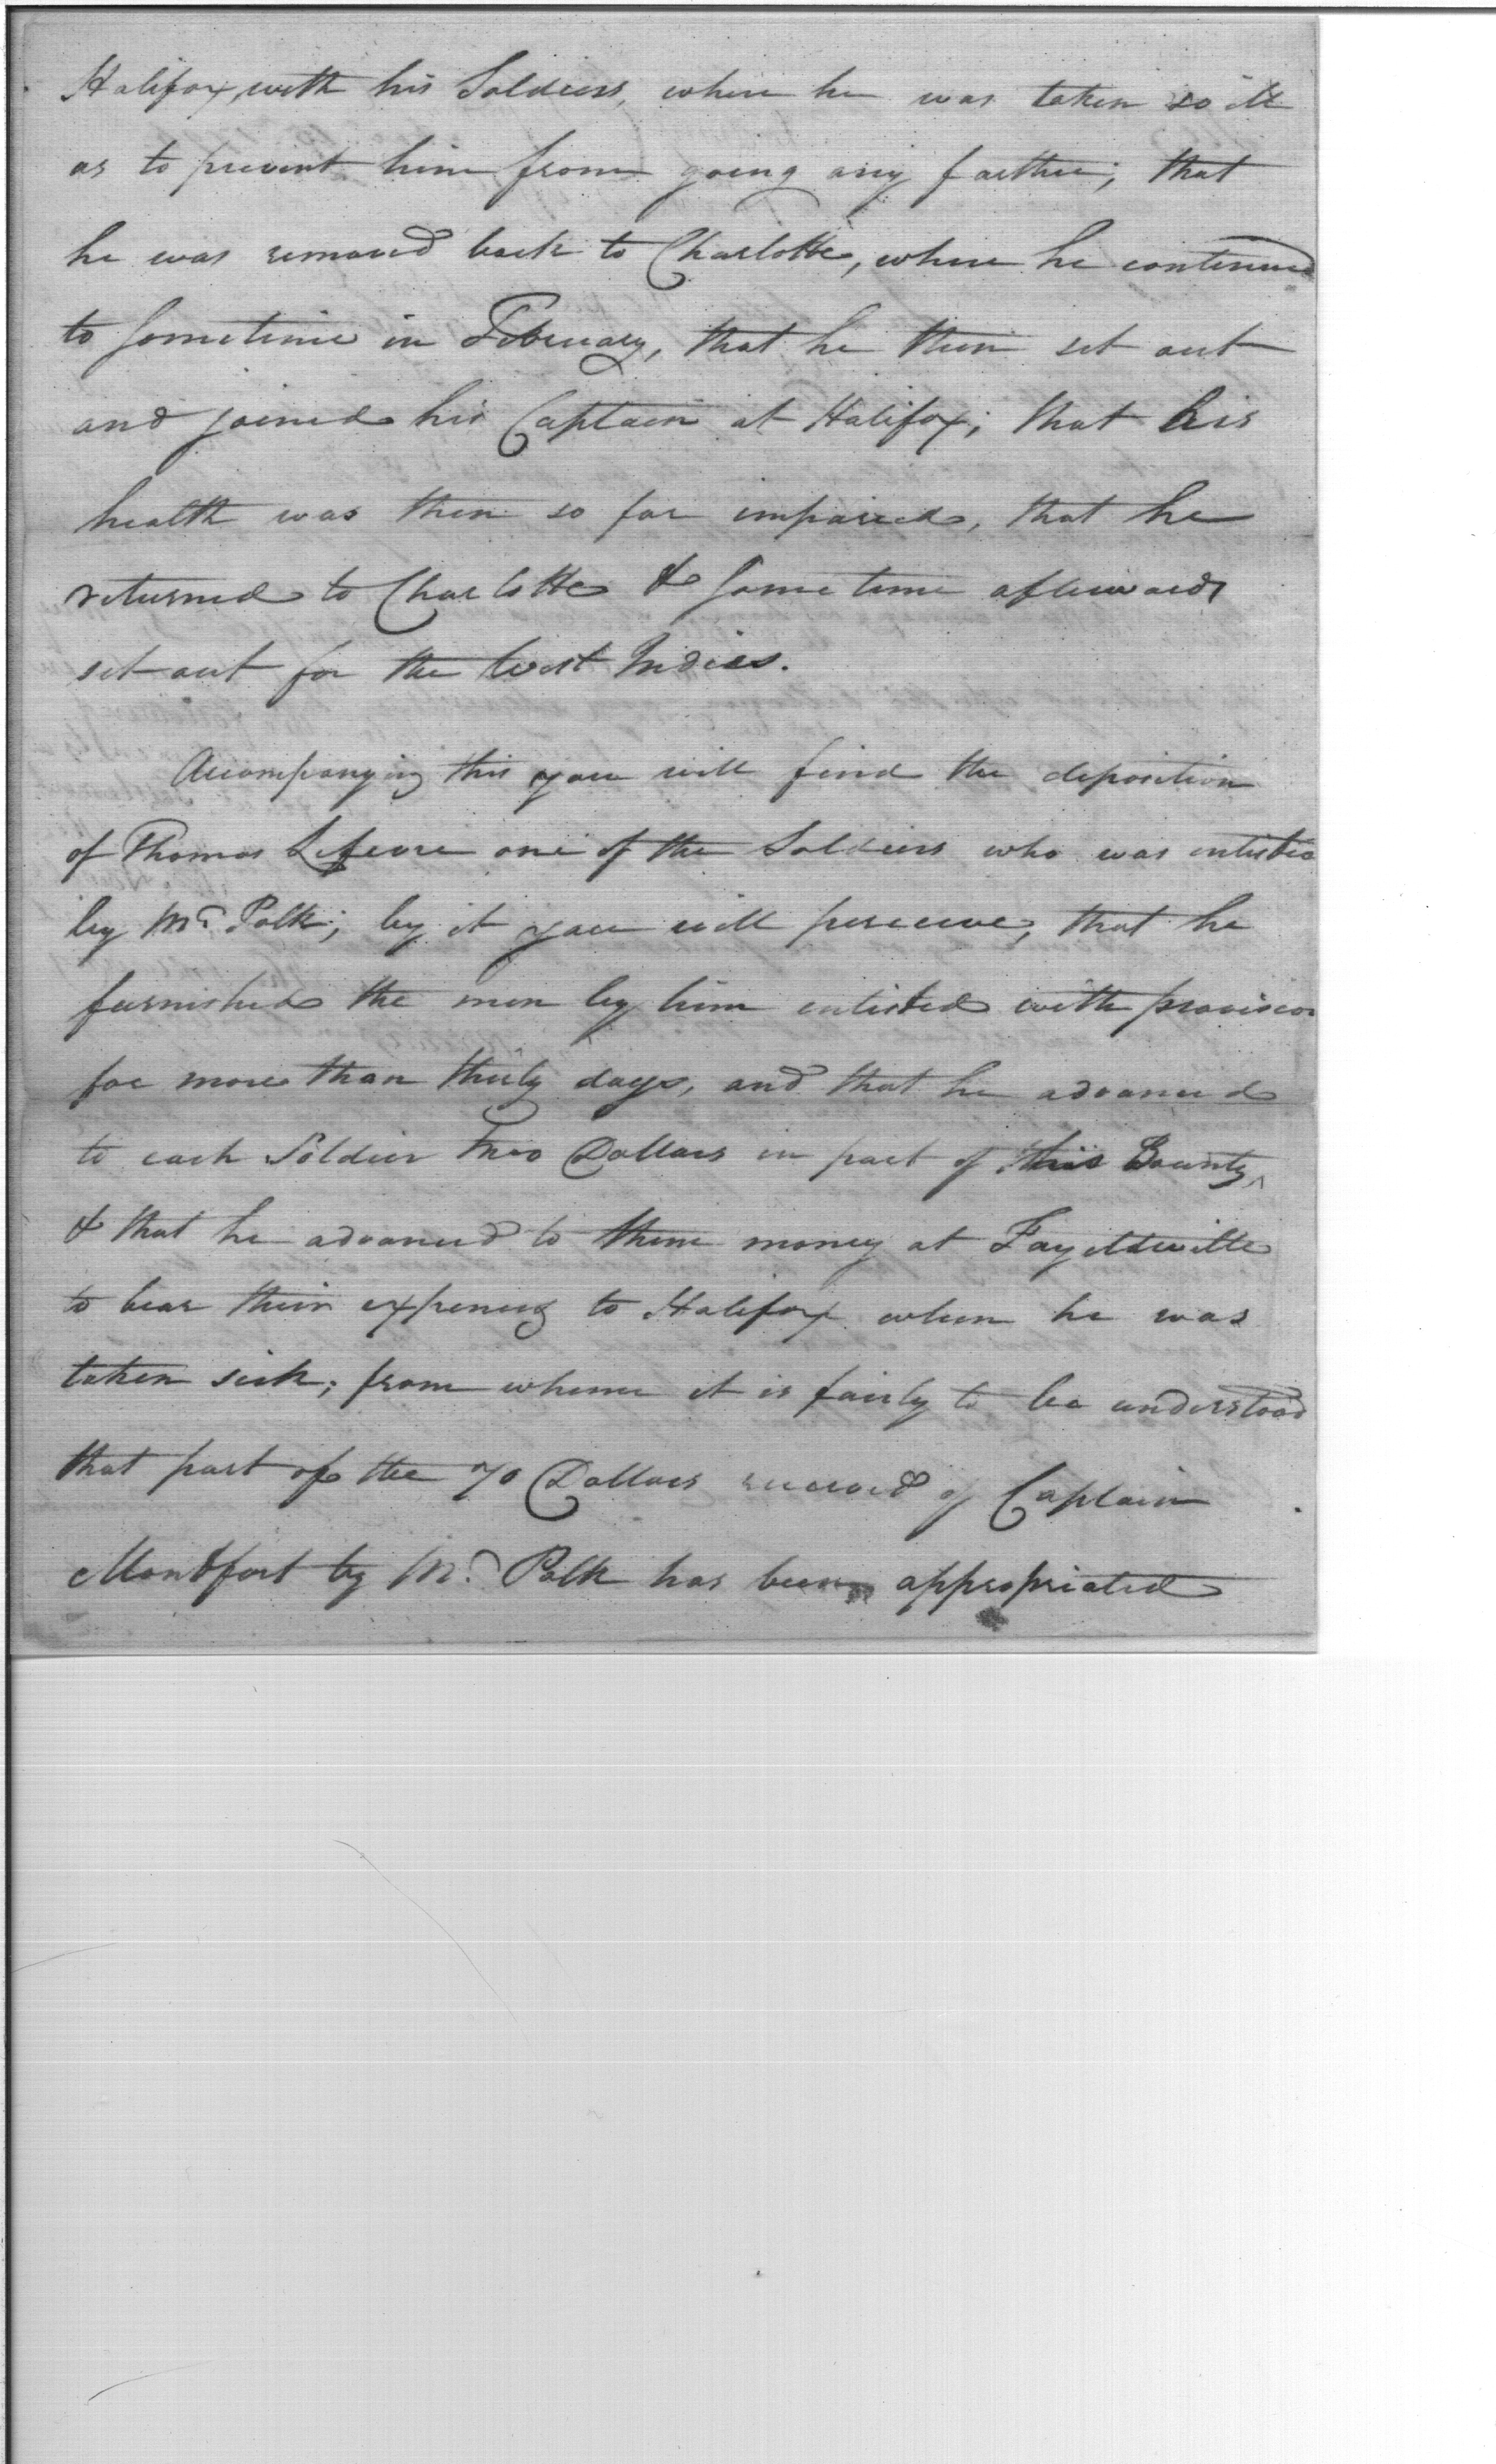 Halifax, with his Soldiers, where he was taken so ill
as to prevent him from going any farther; that
he was removed back to Charlotte, where he continued
to sometime in February, that he then set out
and joined his Captain at Halifax; that his
health was then so far impaired, that he
returned to Charlotte & some time afterwards
set out for the West Indies.
Accompanying this you will find the deposition
of Thomas Lefevre one of the Soldiers who was enlisted
by Mr. Polk; by it you will perceive, that he
furnished the men by him enlisted with provision
for more than thirty days, and that he advanced
to each Soldier two Dollars in part of this Bounty,
& that he advanced to them money at Fayetteville
to bear their expences to Halifax when he was
taken sick; from whence it is fairly to be understood
that part of the 70 Dollars receved of Captain
Montfort by Mr. Polk has been appropriated